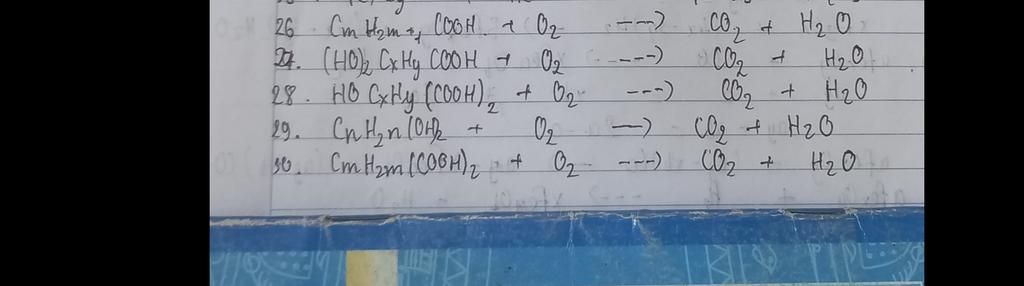 26. CmH2m+1 COOH + O2 ---> CO2 + H2O
27. (HO)2 CxHy COOH + O2 ---> CO2 + H2O
28. HO CxHy (COOH)2 + O2 ---> CO2 + H2O
29. CnH2n(OH)2 + O2 —> CO2 + H2O
30. CmH2m(COOH)2 + O2 ---> CO2 + H2O